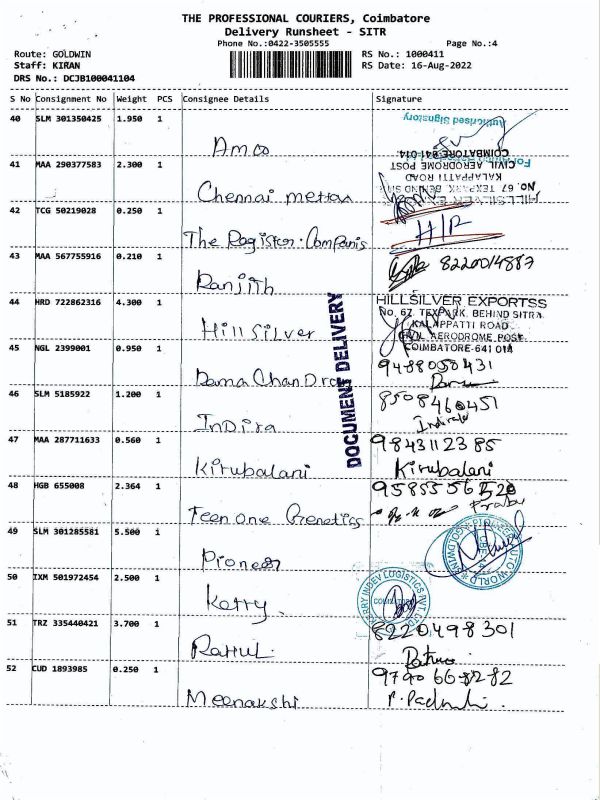 THE PROFESSIONAL COURIERS, Coimbatore
Delivery Runsheet - SITR
Phone No.:0422-3505555 Page No.:4
Route: GOLDWIN RS No.: 1000411
Staff: KIRAN RS Date: 16-Aug-2022
DRS No.: DCJB100041104
S No Consignment No Weight PCS Consignee Details Signature
40 SLM 301350425 1.950 1
Authorised Signatory
Amco
COIMBATORE-641 014.
41 MAA 290377583 2.300 1
CIVIL AERODROME POST
KALAPPATTI ROAD
No. 67 TEXPARK, BEHIND SITRA
HILLSILVER
Chennai mettax
42 TCG 50219028 0.250 1
H/P
The Register. Companis
43 MAA 567755916 0.210 1
8220014887
Ranjith
44 HRD 722862316 4.300 1
HILLSILVER EXPORTSS
No. 67, TEXPARK, BEHIND SITRA
KALAPPATTI ROAD
CIVIL AERODROME POST
COIMBATORE-641 014
Hill silver
DOCUMENT DELIVERY
45 NGL 2399001 0.950 1
9488058431
Rama ChanDran
46 SLM 5185922 1.200 1
8508460451
InDira
47 MAA 287711633 0.560 1
9843112385
Kirubalani Kirubalani
48 HGB 655008 2.364 1
9585556520
Prabu
Teen one Genetics
49 SLM 301285581 5.500 1
PIONEER AUTO WORLD
GOLDWINS
CBE
Pioneer
50 IXM 501972454 2.500 1
KERRY INDEV LOGISTICS PVT. LTD
Kerry.
51 TRZ 335440421 3.700 1
8220498301
Rahul.
52 CUD 1893985 0.250 1
9790668282
Meenakshi